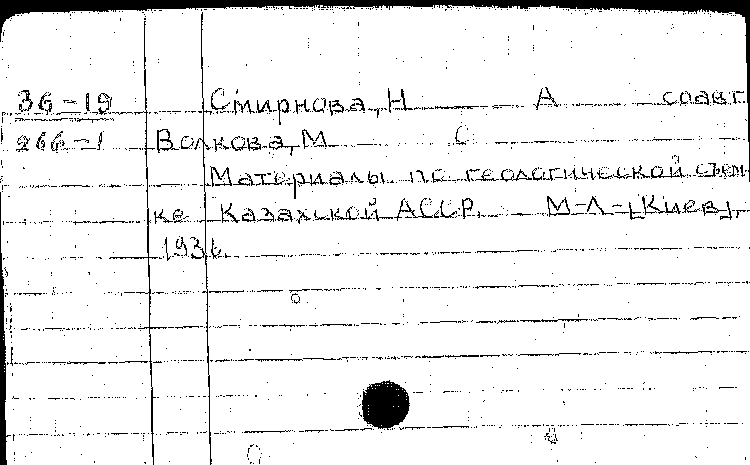 36-19 Смирнова, Н А соавт.
266-1 Волкова, М С
Материалы по геологической съем-
ке Казахской АССР. М-Л-[Киев],
1936.